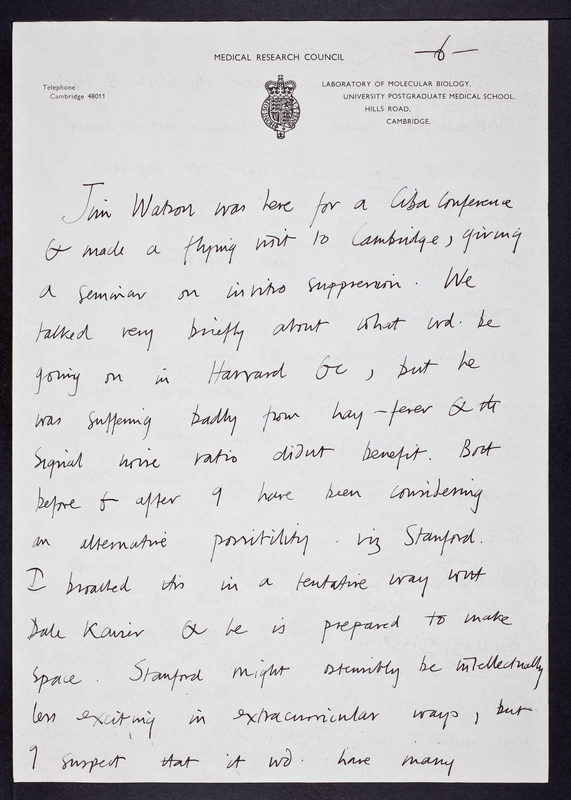 -6-
MEDICAL RESEARCH COUNCIL
Telephone:
Cambridge 48011
LABORATORY OF MOLECULAR BIOLOGY,
UNIVERSITY POSTGRADUATE MEDICAL SCHOOL,
HILLS ROAD,
CAMBRIDGE.
Jim Watson was here for a Ciba Conference
& made a flying visit to Cambridge, giving
a seminar on in vitro suppression. We
talked very briefly about what wd. be
going on in Harvard &c, but he
was suffering badly from hay-fever & the
signal noise ratio didnt benefit. Both
before & after I have been considering
an alternative possibility. viz Stanford.
I broached this in a tentative way with
Dale Kaiser & he is prepared to make
space. Stanford might ostensibly be intellectually
less exciting in extracurricular ways, but
I suspect that it wd. have many